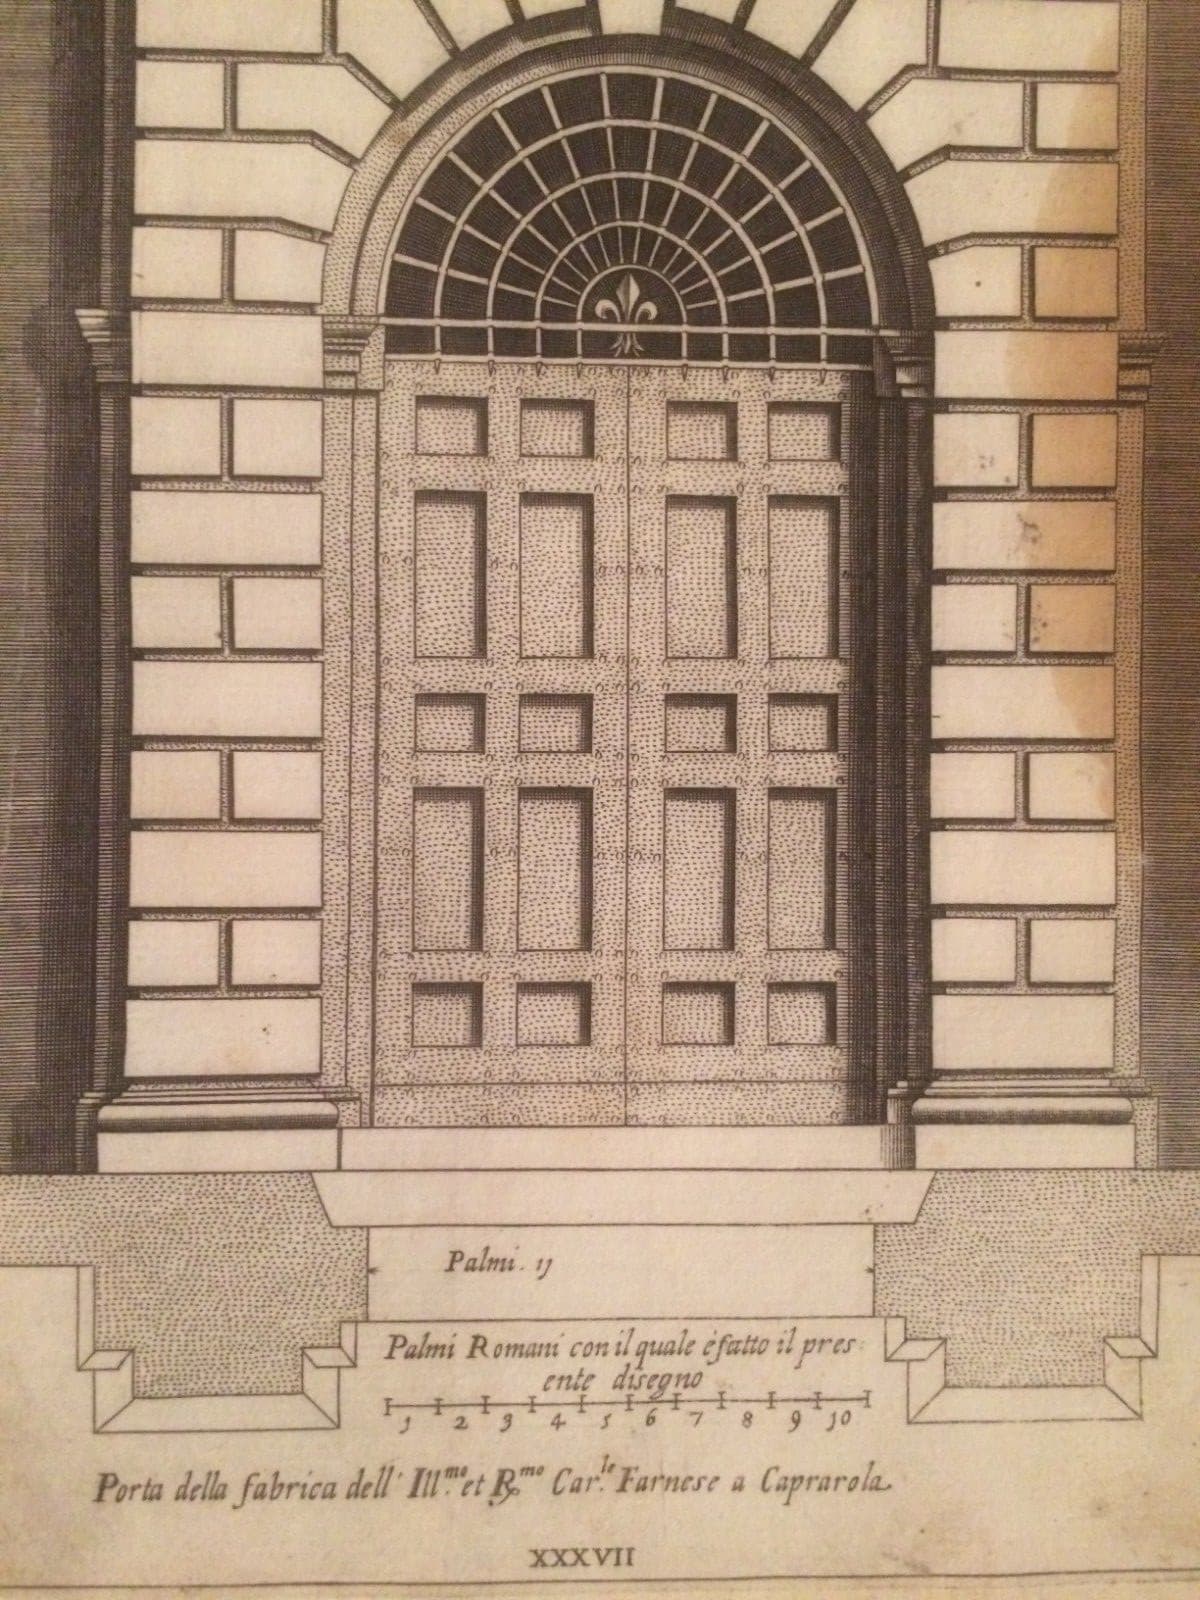 Palmi. 11
Palmi Romani con il quale è fatto il pres
ente disegno
1 2 3 4 5 6 7 8 9 10
Porta della fabrica dell' Ill.mo et R.mo Car.le Farnese a Caprarola
XXXVII